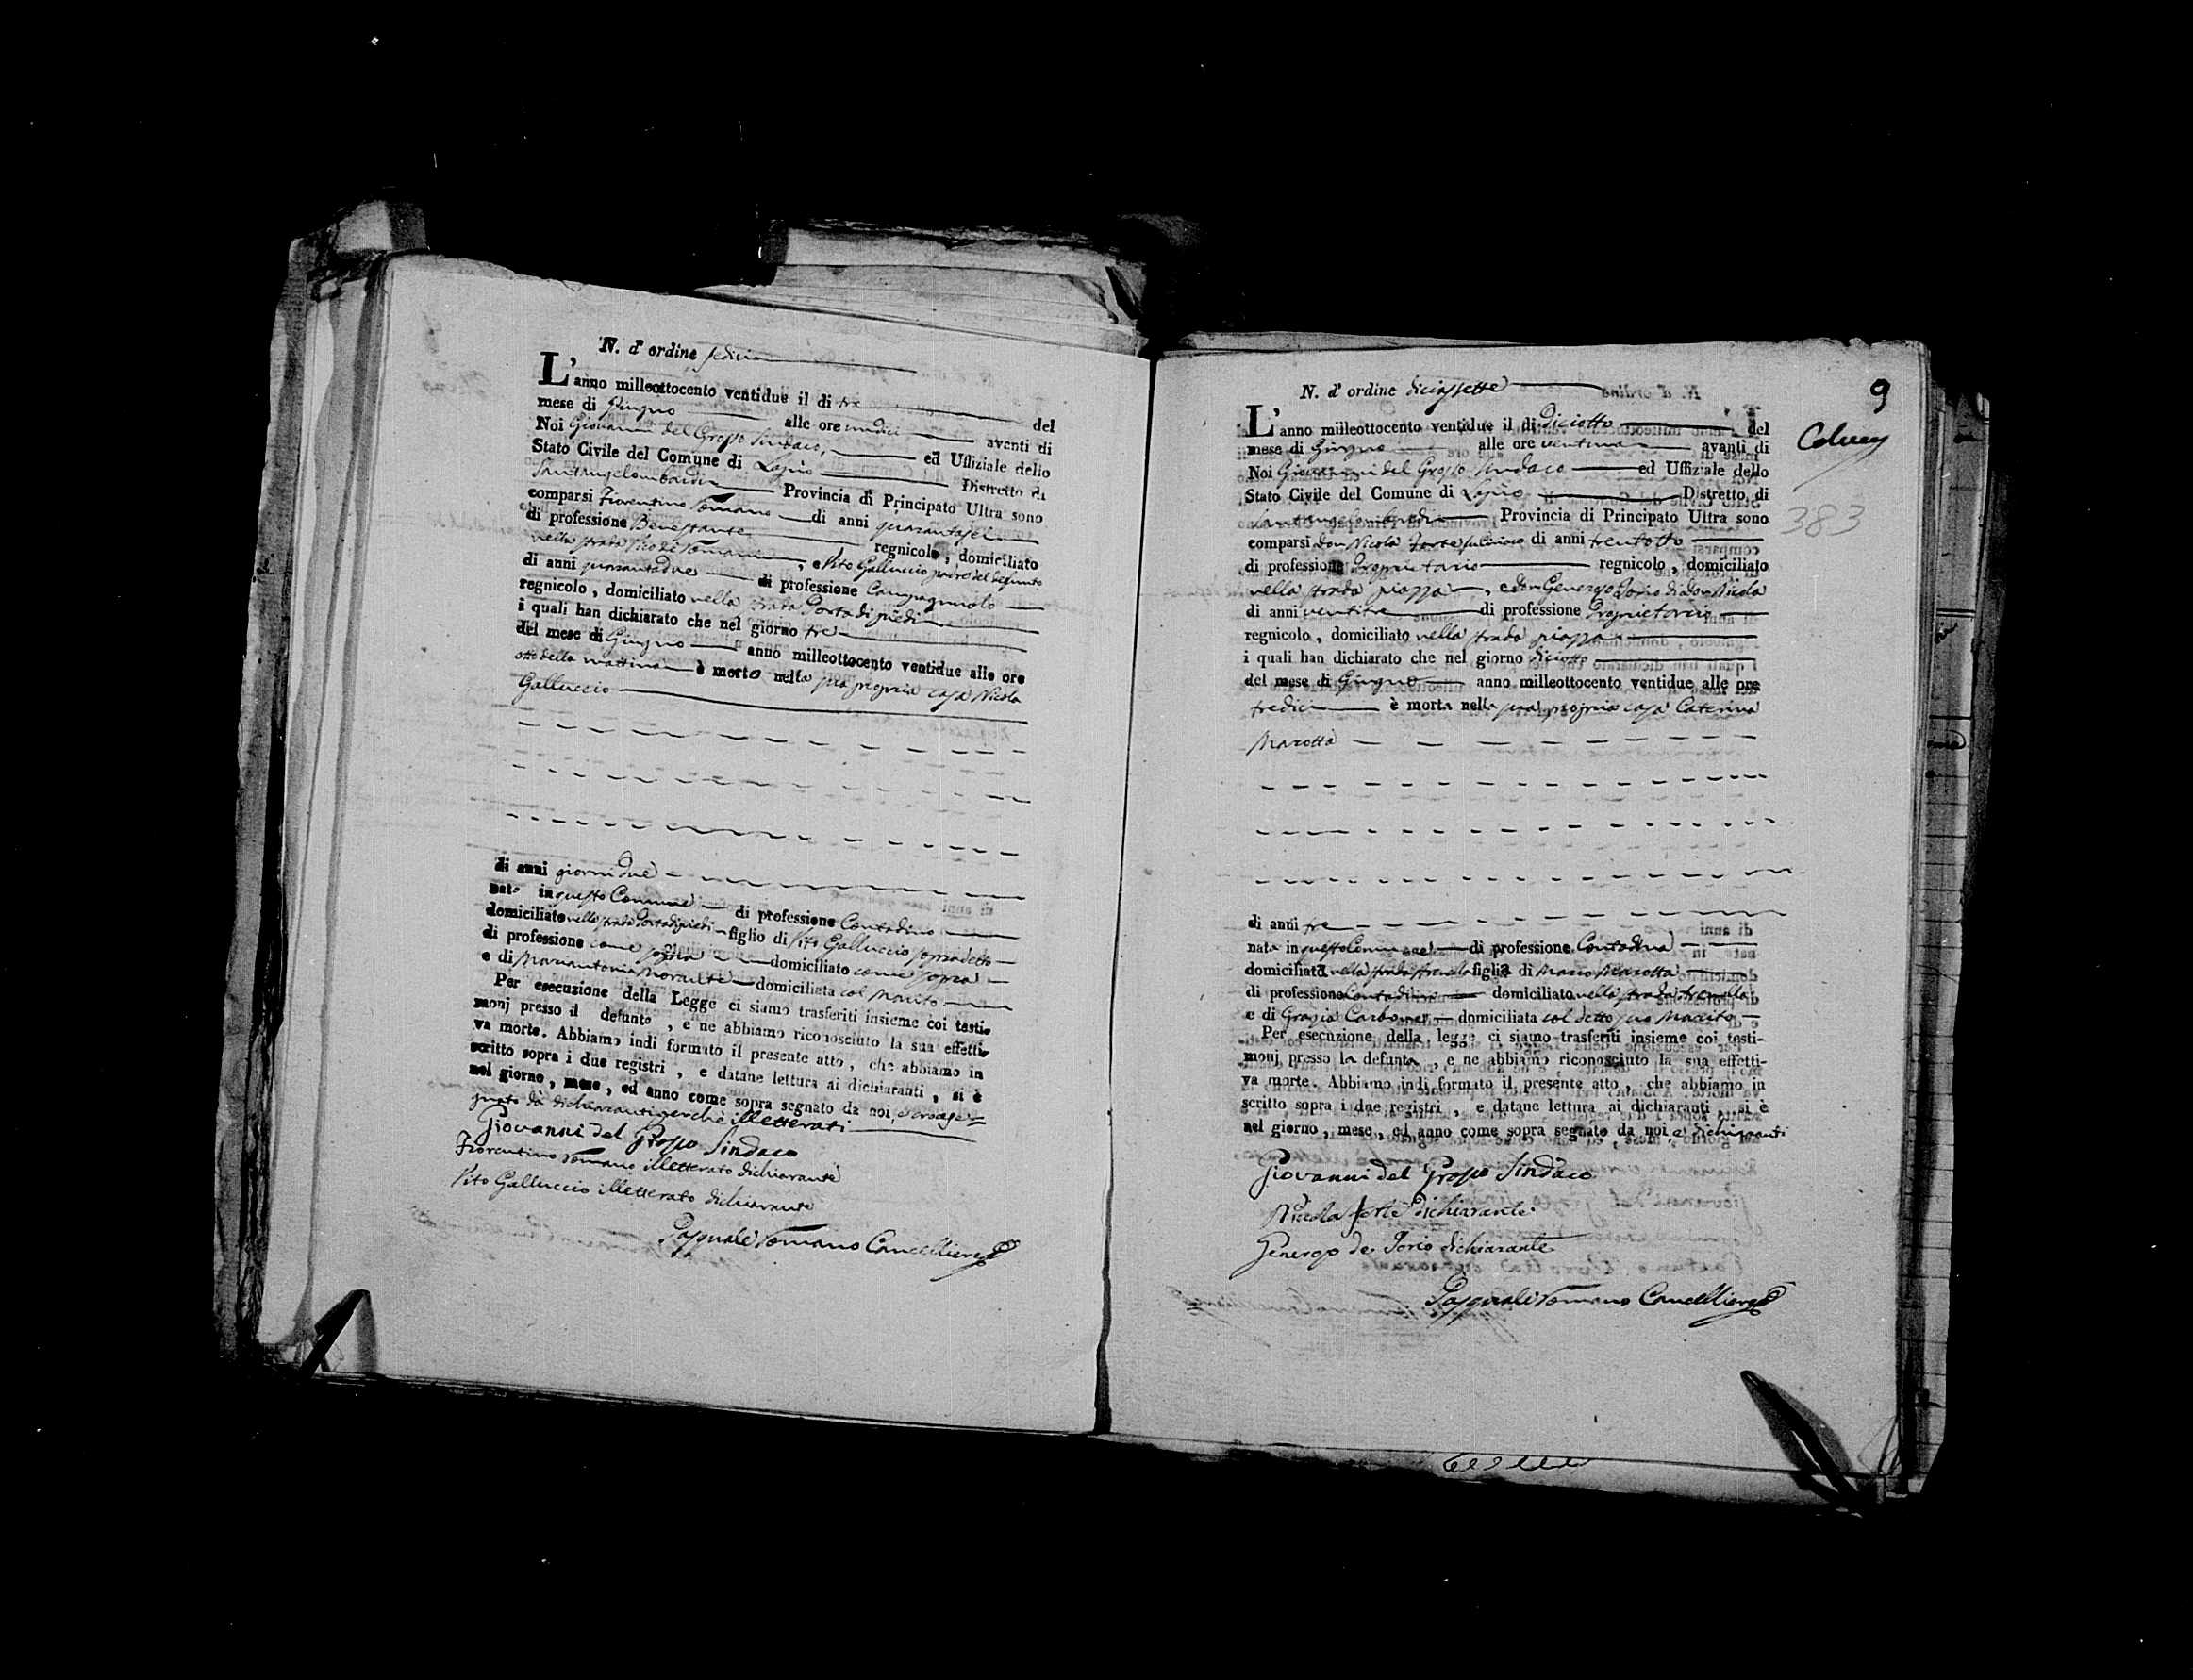 N. d' ordine sedici
L'anno milleottocento ventidue il di tre del
mese di Giugno alle ore undici avanti di
Noi Giovanni del Grosso Sindaco, ed Uffiziale dello
Stato Civile del Comune di Lapio Distretto di
Santangelolombardi Provincia di Principato Ultra sono
comparsi Fiorentino Romano di anni quarantasei
di professione Benestante regnicolo, domiciliato
nella strada Vico de Romani, e Vito Galluccio padre del defunto
di anni quarantadue di professione Campagnuolo
regnicolo, domiciliato nella strada Porta di piedi
i quali han dichiarato che nel giorno tre
del mese di Giugno anno milleottocento ventidue alle ore
otto della mattina è morto nella sua propria casa Nicola
Galluccio
di anni giorni due
nato in questo Comune di professione Contadino
domiciliato nella strada Porta di piedi figlio di Vito Galluccio sopradetto
di professione come sopra domiciliato come sopra
e di Mariantonia Morante domiciliata col Marito
Per esecuzione della Legge ci siamo trasferiti insieme coi testi-
monj presso il defunto, e ne abbiamo riconosciuto la sua effetti-
va morte. Abbiamo indi formato il presente atto, che abbiamo in
scritto sopra i due registri, e datane lettura ai dichiaranti, si è
nel giorno, mese, ed anno come sopra segnato da noi,
gnato da dichiaranti perchè illetterati
Giovanni del Grosso Sindaco
Fiorentino Romano illetterato dichiarante
Vito Galluccio illetterato dichiarante
Pasquale Romano Cancelliere
9
383
N. d' ordine diciassette
L'anno milleottocento ventidue il di diciotto del
mese di Giugno alle ore ventuna avanti di
Noi Giovanni del Grosso Sindaco ed Uffiziale dello
Stato Civile del Comune di Lapio Distretto di
Santangelolombardi Provincia di Principato Ultra sono
comparsi don Nicola Forte di anni trentotto
di professione Proprietario regnicolo, domiciliato
nella strada piazza, e don Generoso Iorio di don Nicola
di anni ventitre di professione Proprietario
regnicolo, domiciliato nella strada piazza
i quali han dichiarato che nel giorno diciotto
del mese di Giugno anno milleottocento ventidue alle ore
tredici è morta nella sua propria casa Caterina
Marotta
di anni tre
nata in questo Comune di professione Contadina
domiciliata nella strada figlia di Mario Marotta
di professione Contadino domiciliato nella strada
e di Grazia Carbone domiciliata col detto suo Marito
Per esecuzione della legge ci siamo trasferiti insieme coi testi-
monj presso la defunta, e ne abbiamo riconosciuto la sua effetti-
va morte. Abbiamo indi formato il presente atto, che abbiamo in
scritto sopra i due registri, e datane lettura ai dichiaranti, si è
nel giorno, mese, ed anno come sopra segnato da noi, e dichiaranti
Giovanni del Grosso Sindaco
Nicola Forte dichiarante
Generoso de Iorio dichiarante
Pasquale Romano Cancelliere